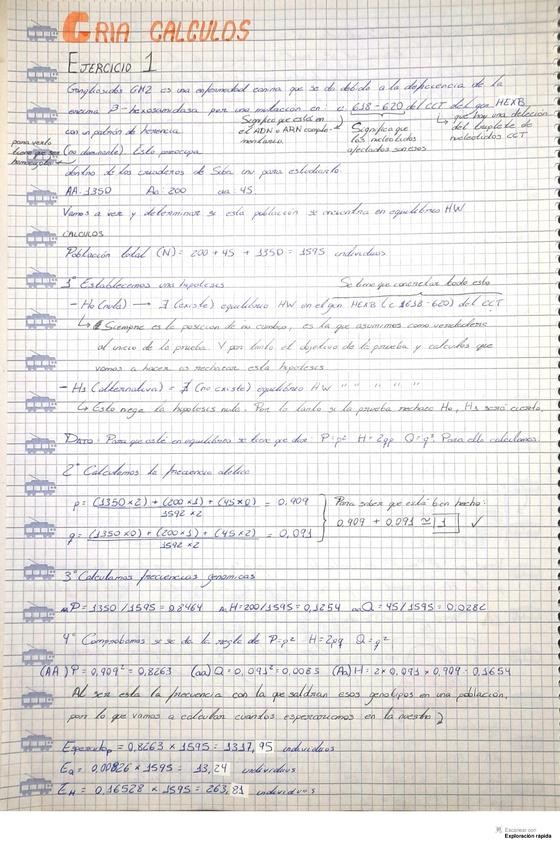 CRIA CALCULOS
EJERCICIO 1
Gangliosidos GM2 es una enfermedad canina que se da debido a la deficiencia de la
enzima β-hexosaminidasa por una mutacion en: c 618-620 del CCT del gen HEXB
con un patron de herencia
Significa que está en el ADN o ARN complementario.
Significa que los nucleotidos afectados son esos
que hay una deleción del triplete de nucleotidos CCT
para verlo tiene que ser homocigoto
(no dominante) Esto preocupa
dentro de los criaderos de Siba inu para estudiarlo.
AA: 1350 Aa: 200 aa: 45.
Vamos a ver y determinar si esta población se encuentra en equilibrio HW
CALCULOS
Población total (N) = 200 + 45 + 1350 = 1595 individuos
1º Establecemos una hipotesis
Se tiene que concretar todo esto
- Ho (nula) → ∃ (existe) equilibrio HW en el gen HEXB (c 1618-620) del CCT
↳ Siempre es la posicion de no cambio, es la que asumimos como verdadera
al inicio de la prueba. Y por tanto el objetivo de la prueba y calculos que
vamos a hacer es rechazar esta hipotesis
- H1 (alternativa) = ∄ (no existe) equilibrio HW " " " " "
↳ Esto niega la hipotesis nula. Por lo tanto si la prueba rechaza Ho, H1 será cierta.
DATO: Para que esté en equilibrio se tiene que dar: P=p² H=2pq Q=q². Para ello calculamos.
2º Calculamos la frecuencia alelica
p = (1350×2) + (200×1) + (45×0) / 1592 ×2 = 0,909
q = (1350×0) + (200×1) + (45×2) / 1592 ×2 = 0,091
Para saber que está bien hecho:
0,909 + 0,091 ≅ 1 ✓
3º Calculamos frecuencias genomicas
AA P = 1350/1595 = 0.8464 Aa H = 200/1595 = 0,1254 aa Q = 45/1595 = 0.0282
4º Comprobamos si se da la regla de P=p² H=2pq Q=q²
(AA) P = 0,909² = 0,8263 (aa) Q = 0,091² = 0,0083 (Aa) H = 2 × 0,091 × 0,909 = 0,1654
Al ser esta la frecuencia con la que saldrian esos genotipos en una población,
por lo que vamos a calcular cuantos esperariamos en la nuestra
Esperado P = 0,8263 × 1595 = 1317,95 individuos
EQ = 0,00826 × 1595 = 13,24 individuos
EH = 0,16528 × 1595 = 263,81 individuos
Escanear con
Exploración rápida